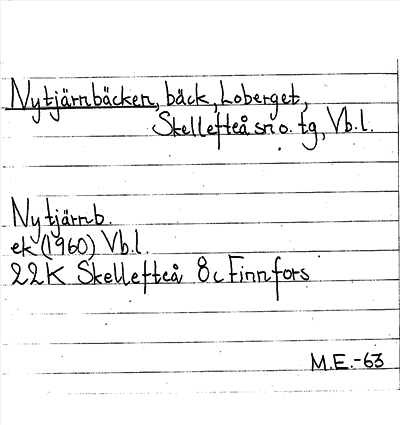 Nytjärnbäcken, bäck, Loberget,
Skellefteå sn o. tg, Vb.l.
Nytjärnb.
ek (1960) Vb.l.
22K Skellefteå 8c Finnfors
M.E.-63